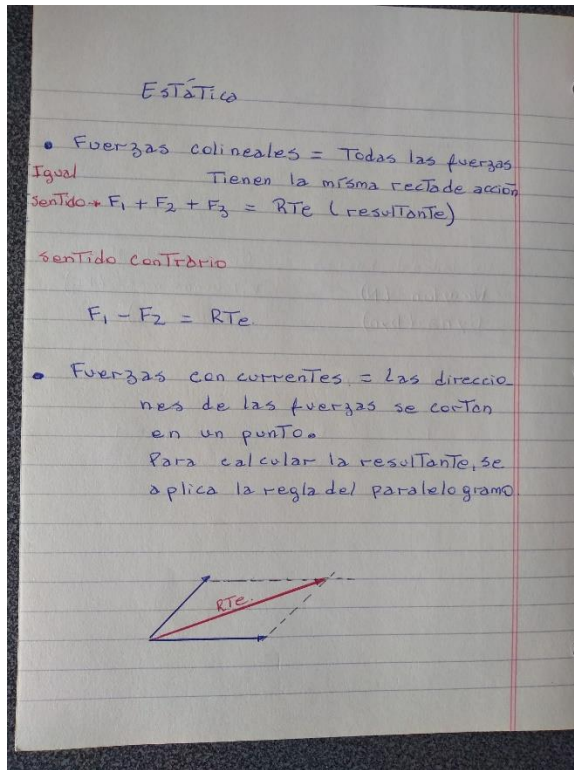 Estática
• Fuerzas colineales = Todas las fuerzas
Igual Tienen la misma recta de acción
sentido → F₁ + F₂ + F₃ = RTe (resultante)
sentido contrario
F₁ - F₂ = RTe.
• Fuerzas concurrentes = Las direccio_
nes de las fuerzas se cortan
en un punto.
Para calcular la resultante, se
aplica la regla del paralelogramo
RTe.